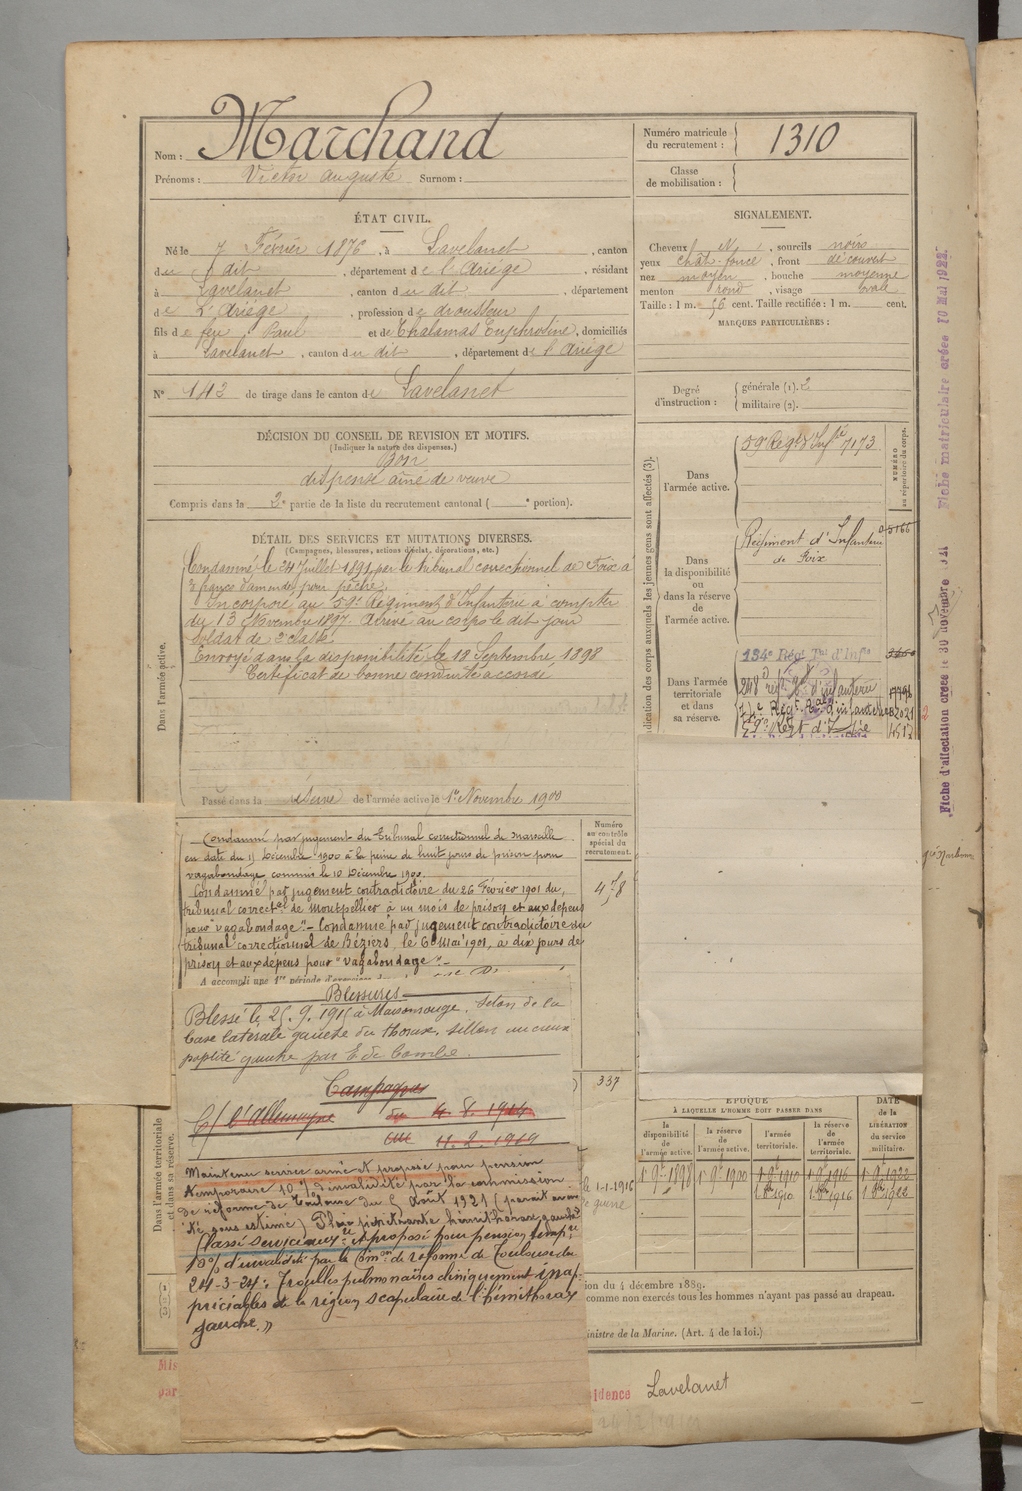 Nom : Marchand
Prénoms : Victor Auguste Surnom :
ÉTAT CIVIL.
Né le 7 Février 1876, à Lavelanet, canton
du dit, département de l'Ariège, résidant
à Lavelanet, canton du dit, département
de L'Ariège, profession de drousseur
fils de feu Paul et de Thalamas Euphrosine, domiciliés
à Lavelanet, canton du dit, département de l'Ariège
N° 142 de tirage dans le canton de Lavelanet
DÉCISION DU CONSEIL DE REVISION ET MOTIFS.
(Indiquer la nature des dispenses.)
Bon
dispensé aîné de veuve
Compris dans la 2e partie de la liste du recrutement cantonal ( e portion).
DÉTAIL DES SERVICES ET MUTATIONS DIVERSES.
(Campagnes, blessures, actions d'éclat, décorations, etc.)
Condamné le 24 Juillet 1891 par le tribunal correctionnel de Foix à
francs d'amende pour pêche.
Incorporé au 59e Régiment d'Infanterie à compter
du 13 Novembre 1897. Arrivé au corps le dit jour
Soldat de 2e classe
Envoyé dans la disponibilité le 18 Septembre 1898
Certificat de bonne conduite accordé
Dans l'armée active.
Passé dans la réserve de l'armée active le 1er Novembre 1900
Condamné par jugement du Tribunal correctionnel de Marseille
en date du 11 Décembre 1900 à la peine de huit jours de prison pour
vagabondage commis le 10 Décembre 1900.
Condamné par jugement contradictoire du 26 Février 1901 du
tribunal correctel de Montpellier à un mois de prison et aux dépens
pour "vagabondage". - Condamné par jugement contradictoire du
tribunal correctionnel de Béziers, le 6 Mai 1901, à dix jours de
prison et aux dépens pour "vagabondage". -
A accompli une 1re période d'exercices
Blessures
Blessé le 25.9.1915 à Maisonrouge. Séton de la
base latérale gauche du thorax. Sillon au creux
poplité gauche par E. de bombe.
Campagnes
C/ l'Allemagne du 4.8.1914
au 11.2.1919
Maintenu service armé et proposé pour pension
temporaire 10% d'invalidité par la commission
de réforme de Toulouse du 5 Août 1921 (
té sous estimé) Plaie pénétrante hémithorax gauche
Classé service auxre et proposé pour pension tempre
10% d'invalidité par la Comon de réforme de Toulouse du
24-3-24: Troubles pulmonaires cliniquement inap-
préciables de la région scapulaire de l'hémithorax
gauche. »
Dans l'armée territoriale
et dans sa réserve.
Numéro
au contrôle
spécial du
recrutement.
458
337
Numéro matricule
du recrutement : 1310
Classe
de mobilisation :
SIGNALEMENT.
Cheveux N, sourcils noirs
yeux chât. foncé, front découvert
nez moyen, bouche moyenne
menton rond, visage ovale
Taille : 1 m. 56 cent. Taille rectifiée : 1 m. cent.
MARQUES PARTICULIÈRES :
Degré
d'instruction :
générale (1). 2
militaire (2).
Indication des corps auxquels les jeunes gens sont affectés (3).
NUMÉRO
au répertoire du corps.
Dans
l'armée active.
59e Régt d'Infie 7173
Dans
la disponibilité
ou
dans la réserve
de l'armée
active.
Régiment d'Infanterie 5166
de Foix
Dans l'armée
territoriale
et dans
sa réserve.
134e Régt Tal d'Infie
248e régt d'infanterie
59e Régt d'Inf
ÉPOQUE
À LAQUELLE L'HOMME DOIT PASSER DANS
DATE
de la
LIBÉRATION
du service
militaire.
la
disponibilité
de
l'armée active.
la réserve
de
l'armée active.
l'armée
territoriale.
la réserve
de
l'armée
territoriale.
1er 9bre 1898 1er 9bre 1900 1er 9bre 1910 1er 9bre 1916 1er 9bre 1922
1er 8bre 1910 1er 8bre 1916 1er 8bre 1922
le 1-1-1916
ion du 4 décembre 1889.
comme non exercés tous les hommes n'ayant pas passé au drapeau.
inistre de la Marine. (Art. 4 de la loi.)
Mis
par
idence Lavelanet
Fiche d'affectation créée le 30 novembre 1921 Fiche matriculaire créée 10 Mai 1922.
Narbonne